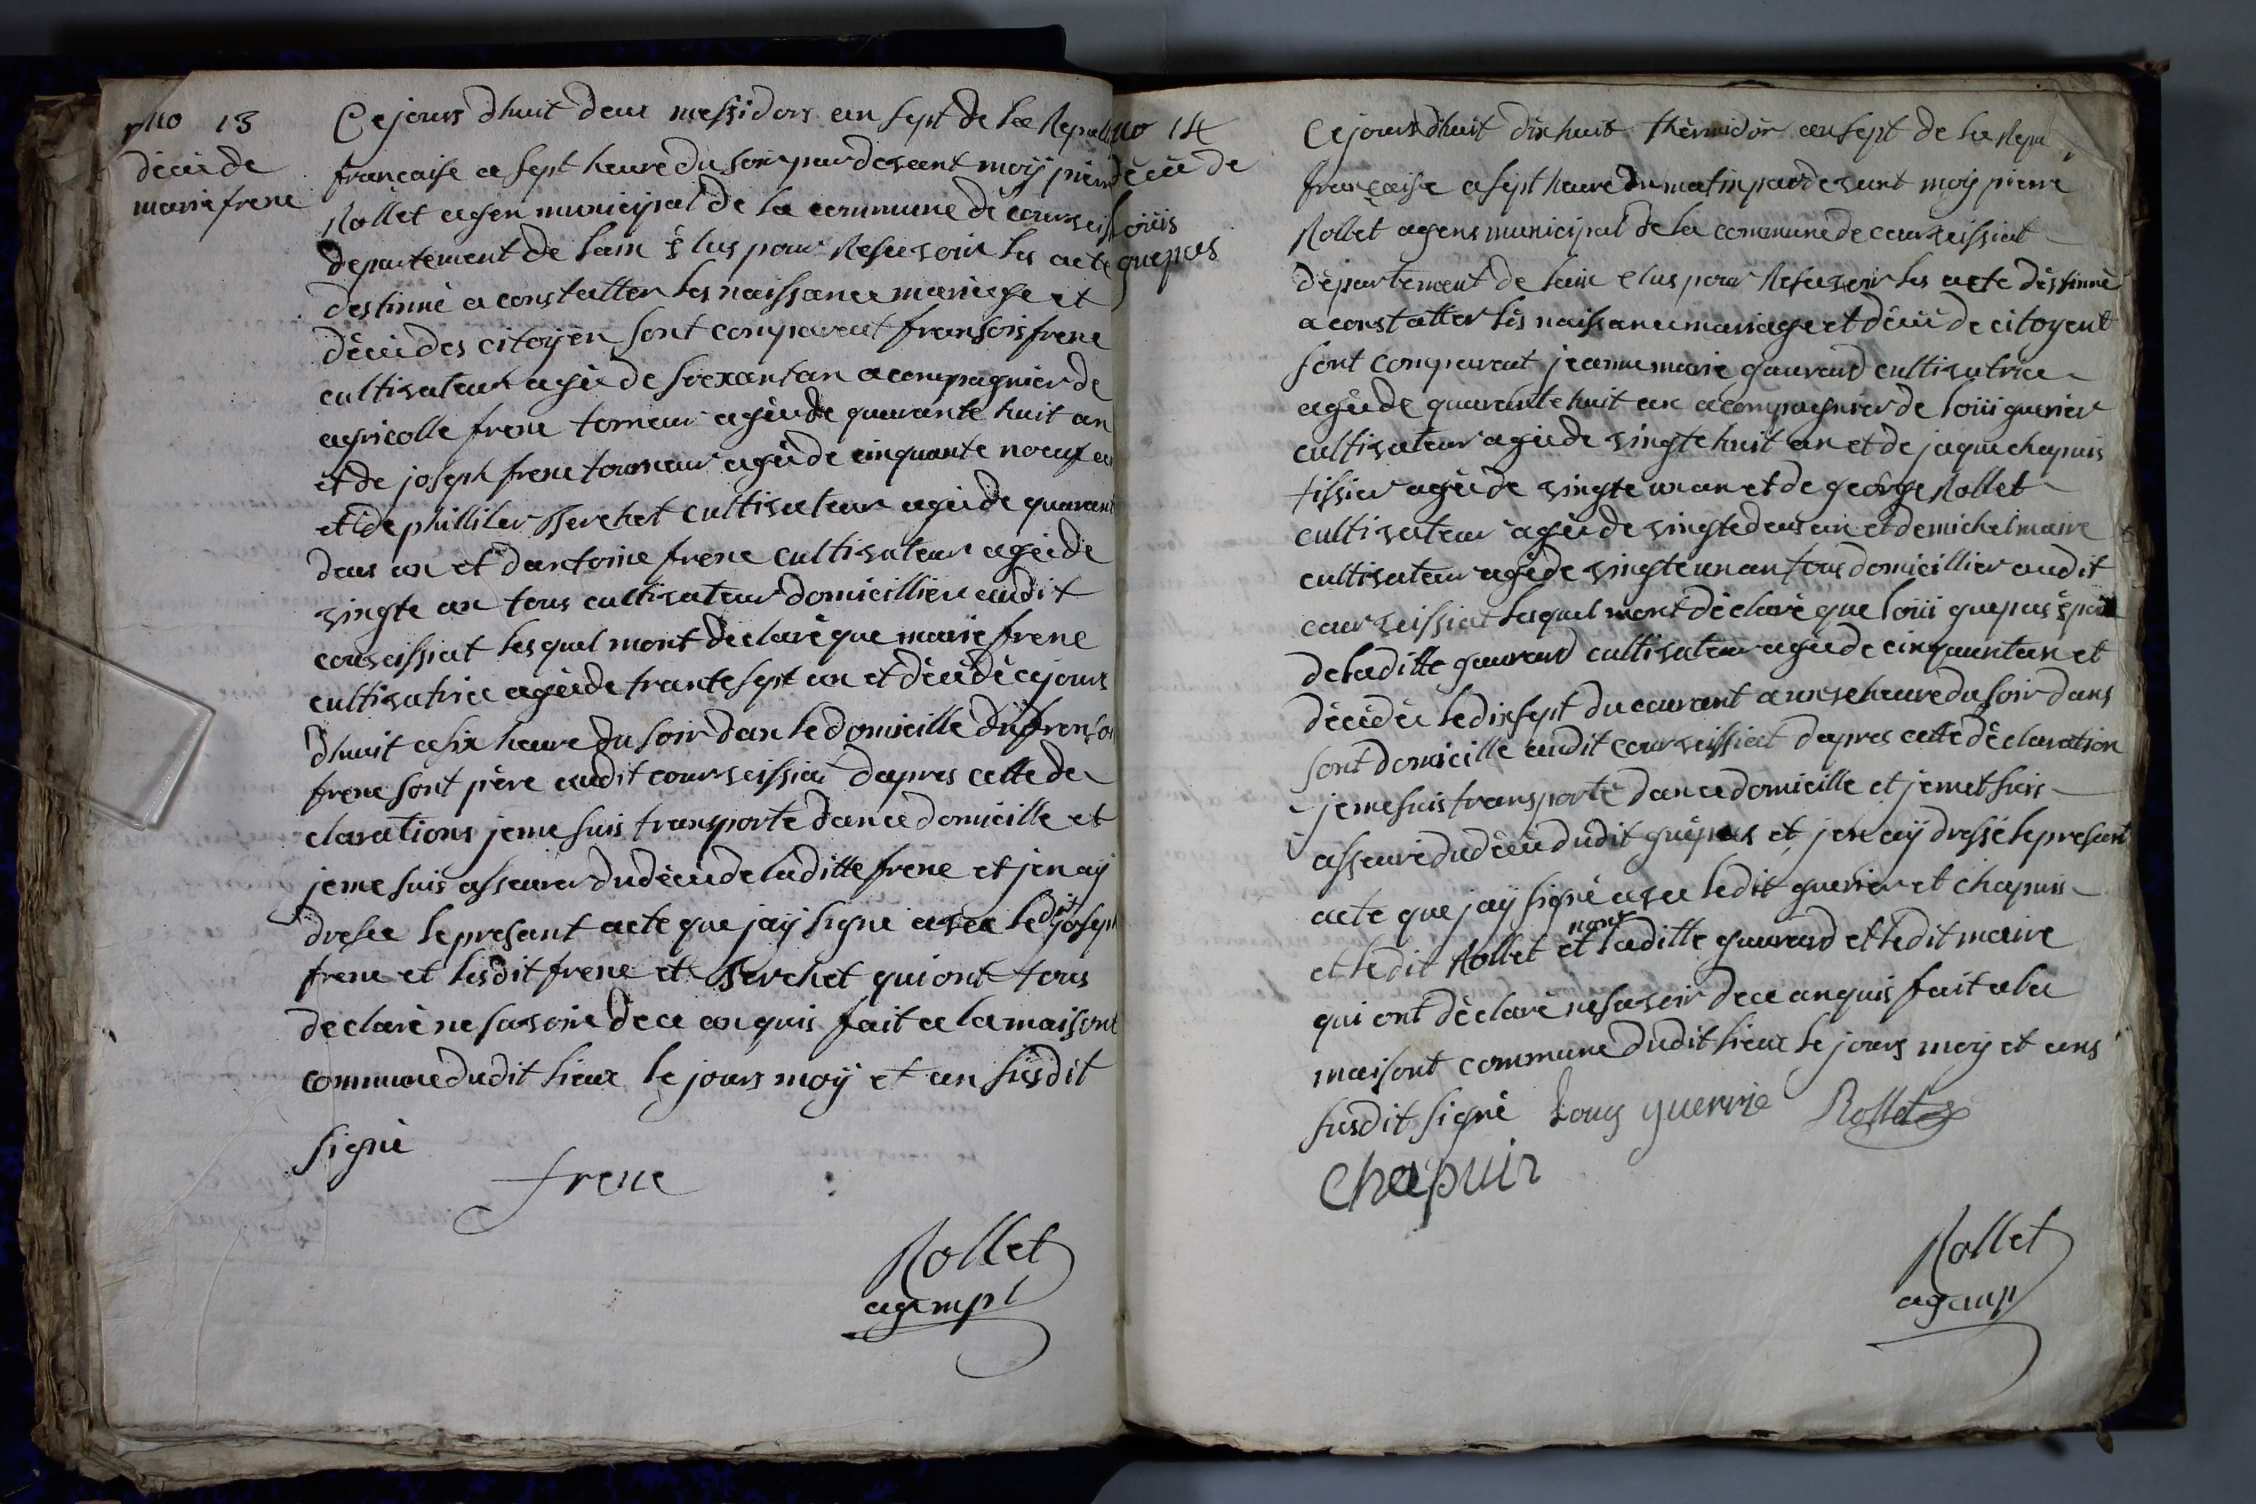 no 13
décéde
marie frene
Ce jours dhuit deux messidors an sept de La Repu
française a sept heure du soir par devant moÿ pierr
Rollet agen municipal de la commune de courveiss
departement de lain élus pour Resevoir les acte
destinné a constatter les naissance mariage et
décéi des citoÿen sont comparent fransois frene
cultivateur agéé de soexantan acompagnier de
agricolle frene torneur agéé de quarante huit an
et de joseph frene tourneur agéé de cinquante noeuf an
et de philliber servehet cultivateur agéé de quarant
deux an et dantoine frene cultivateur agéé de
vingte an tous cultivateur domicillier audit
courveissiat les quel mont déclaré que marie frene
cultivatrice agéé de trante sept an et décédé ce jours
dhuit a six heure du soir dan le domicille du fransoi
frene sont père audit courveissiat dapres cette de
clarations je me suis transporté dan ce domicille et
je me suis asseurer du décéi de laditte frene et jen aÿ
dresée le presant acte que jaÿ signe avec le dit joseph
frene et lesdit frene et servehet qui ont tous
declaré ne savoire de ce an quis fait a la maisont
commune dudit lieux le jours moÿ et an susdit
signé
frene
Rollet
agempl
no 14
décéé de
loüis
guepas
Ce jours dhuit dix huit thérmidor an sept de la Repu
française a sept heure du matin par devant moÿ pierre
Rollet agens municipal de la commune de courveissiat
département de lain elus pour Resevoir les acte déstinné
a constatter lés naissance mariage et décéé de citoyent
sont comparent jeanne marie gauraud cultivatrice
agéé de quarante huit an acompagnier de loüi guerier
cultivateur agéé de vingte huit an et de jaque chapuis
tissier agéé de vingte un an et de george Rollet
cultivateur agéé de vingte deux an et de michel maire
cultivateur agéé de vingte un an tous domicillier audit
courveissiat les quel mont déclaré que loüi guepas époux
de laditte gauraud cultivateur agéé de cinquantan et
décédée le dixsept du courant a onse heure du soir dans
sont domicille audit courveissiat dapres cette déclaration
je me suis transporté dan ce domicille et je met suis
asseuré du décéé dudit guépas et jen aÿ dressé le presant
acte que jaÿ signé avec ledit guerier et chapuis
et ledit Rollet et non laditte gauraud et ledit maire
qui ont déclaré ne savoir de ce anquis fait a la
maisont commune dudit lieux le jours moÿ et ans
susdit signé Louis guerrie Rollet
Chapuis
Rollet
agemp